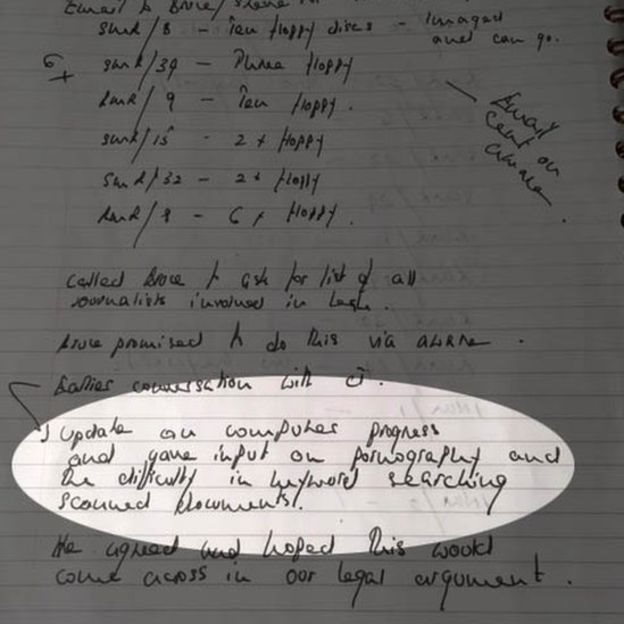 Email to Bruce/
SMR/8 - Ten floppy discs - Imaged
and can go.
6
+ SMR/39 - Three floppy
Email
sent on
aware.
RMR/9 - Ten floppy.
SMR/15 - 2 x floppy
SMR/32 - 2x floppy
RMR/8 - 6 x floppy.
Called Bruce to ask for list of all
journalists involved in leak.
Bruce promised to do this via aware.
Earlier conversation with
Update on computer progress
and gave input on pornography and
the difficulty in keyword searching
scanned documents.
He agreed and hoped this would
come across in our legal argument.